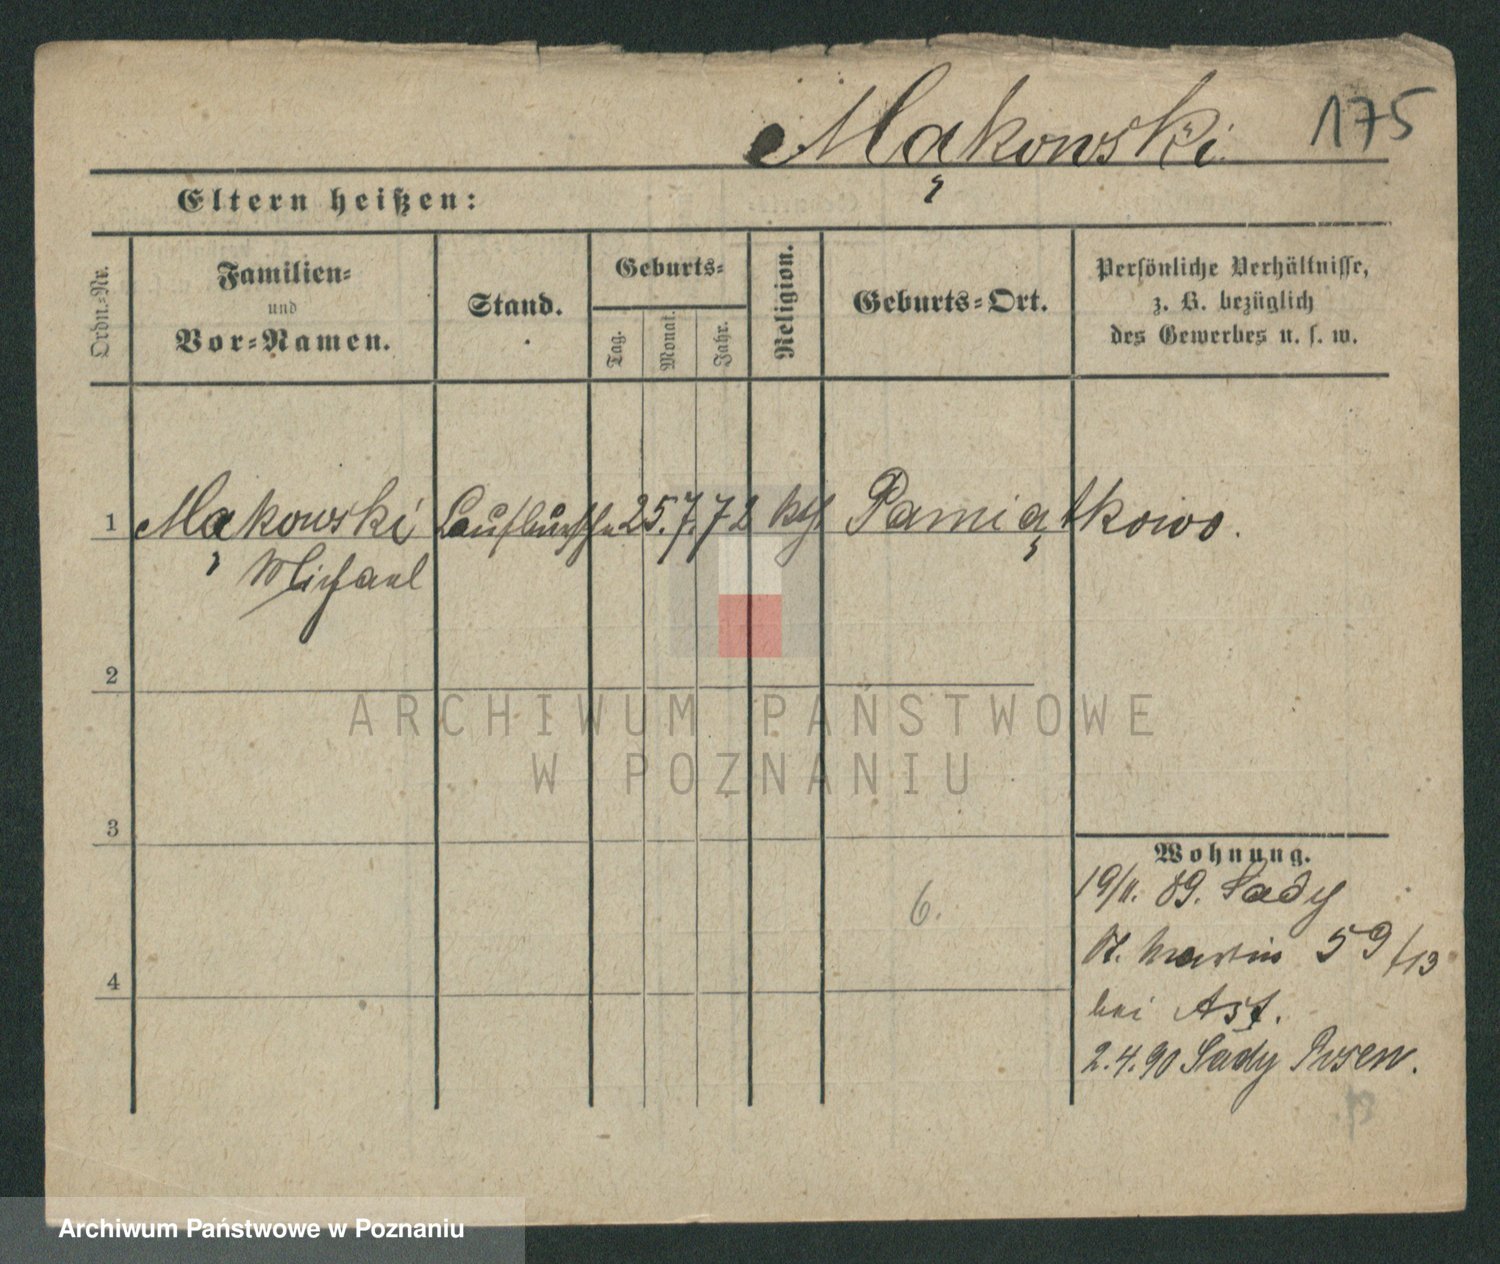 Mąkowski 175
Eltern heißen:
Ordn.-Nr.
Familien-
und
Vor-Namen.
Stand.
Geburts-
Tag.
Monat.
Jahr.
Religion.
Geburts-Ort.
Persönliche Verhältnisse,
z. B. bezüglich
des Gewerbes u. s. w.
1 Mąkowski Laufbursche 25. 7. 72 kth Pamiątkowo.
Michael
2
ARCHIWUM PAŃSTWOWE
W POZNANIU
3
Wohnung.
6. 19/11. 89. Sady
St. Martin 59/13
4
bei
2. 4. 90 Sady Posen.
Archiwum Państwowe w Poznaniu